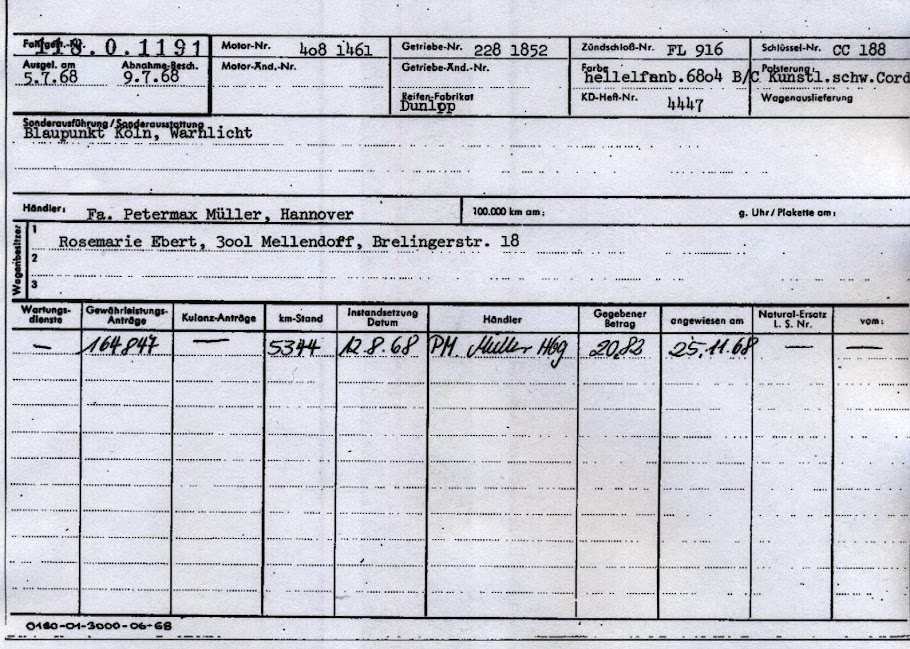 Fahrgest.-Nr. 118.0.1191 Motor-Nr. 4o8 1461 Getriebe-Nr. 228 1852 Zündschloß-Nr. FL 916 Schlüssel-Nr. CC 188
Ausgel. am Abnahme-Besch. Motor-Änd.-Nr. Getriebe-Änd.-Nr. Farbe Polsterung:
5.7.68 9.7.68 hellelfanb.68o4 B/C Kunstl.schw.Cord
Reifen-Fabrikat KD-Heft-Nr. 4447 Wagenauslieferung
Dunlop
Sonderausführung/Sonderausstattung
Blaupunkt Köln, Warnlicht
Händler: Fa. Petermax Müller, Hannover 100.000 km am: g. Uhr/Plakette am:
Wagenbesitzer
1 Rosemarie Ebert, 3oo1 Mellendoff, Brelingerstr. 18
2
3
Wartungs- Gewährleistungs- Kulanz-Anträge km-Stand Instandsetzung Händler Gegebener angewiesen am Natural-Ersatz vom:
dienste Anträge Datum Betrag L. S. Nr.
— 164847 — 5344 12.8.68 PM Müller Hbg 20,82 25.11.68 — —
0160-01-3000-06-68